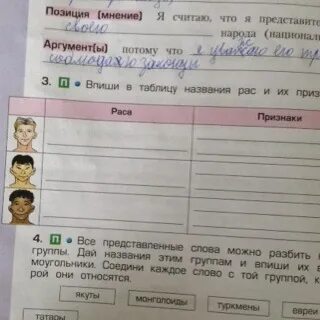 Позиция [мнение] Я считаю, что я представите
своего народа (национал
Аргумент[ы] потому что я уважаю его
и законы
3. П • Впиши в таблицу названия рас и их приз
Раса Признаки
4. П • Все представленные слова можно разбить
группы. Дай названия этим группам и впиши их в
моугольники. Соедини каждое слово с той группой, к
рой они относятся.
якуты монголоиды туркмены евреи
татары